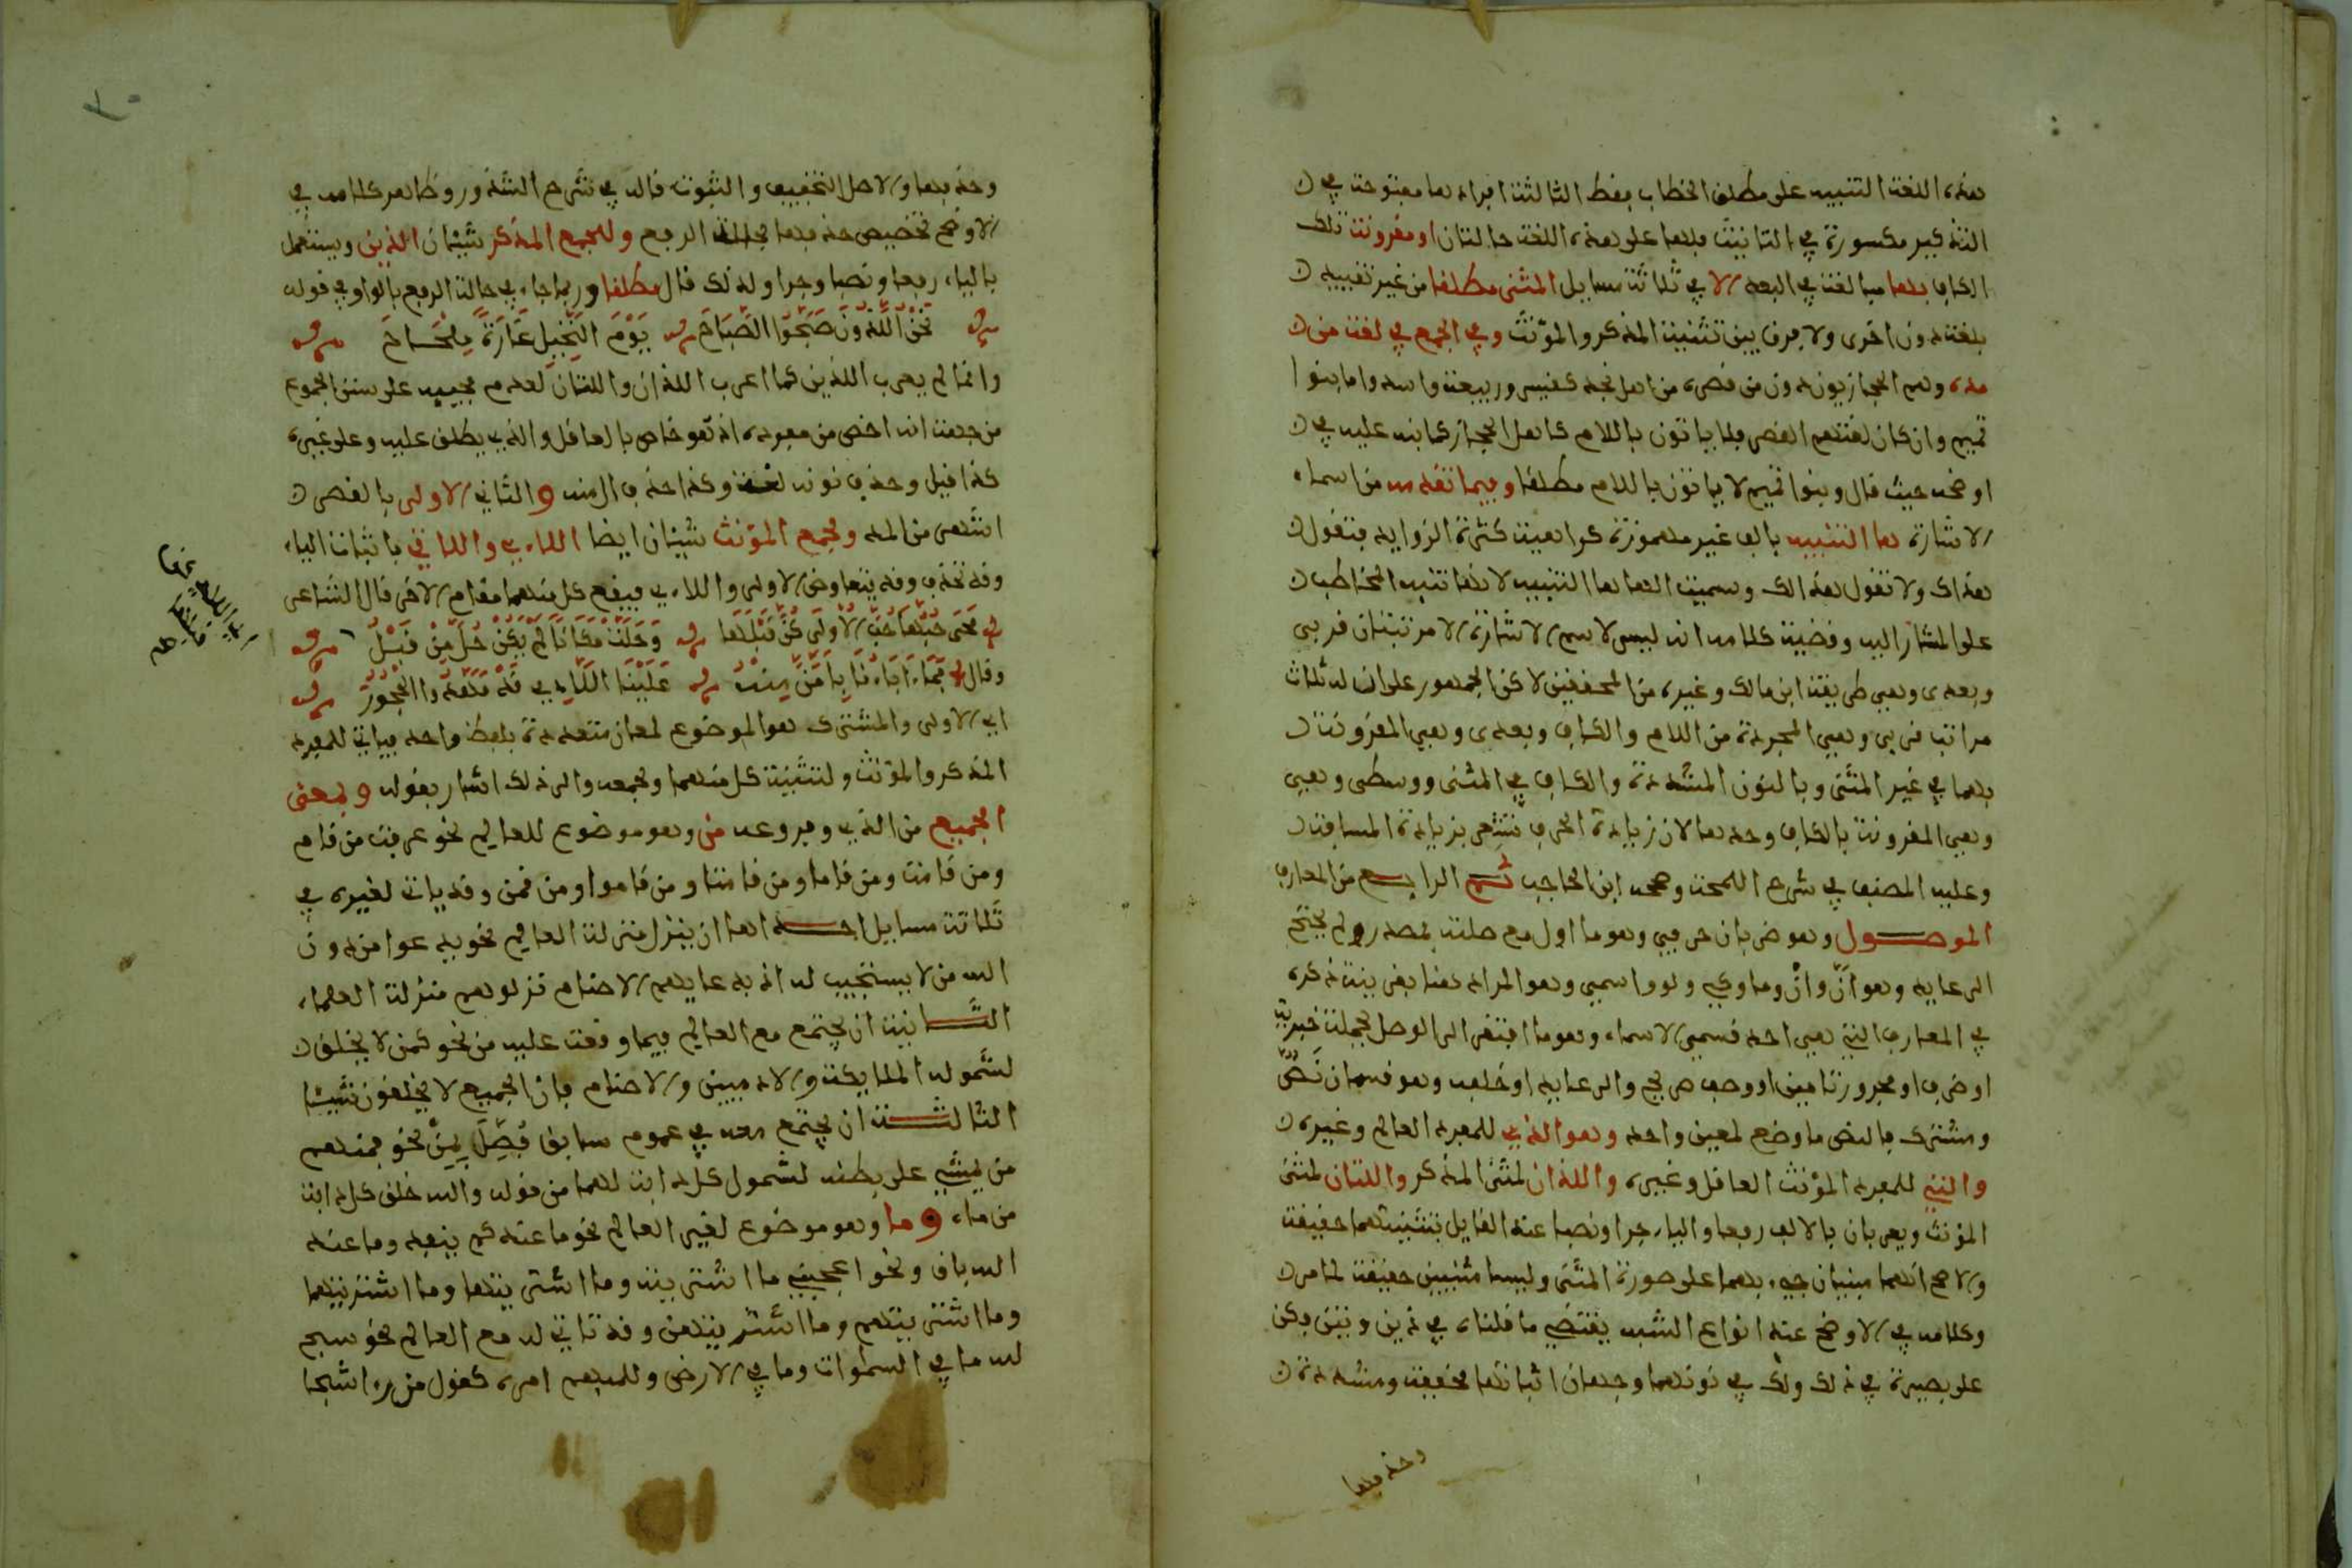 هذه اللغة التنبيه على مطلق الخطاب بفط الثالثة افراد ها مفتوحة في
التذكير مكسورة في التانيث فلها على هذه اللغة حالتان او مقرونة بتلك
الكاف بلها مبالغة في البعد الا في ثلاثة مسايل المثنى مطلقا من غير تقييد
بلغة دون اخرى ولا فرق بين تثنية المذكر والمؤنث وفي الجمع في لغة من
مده وهم الحجازيون دون من قصره من اهل نجد كقيس وربيعة واسد واما بنوا
تميم وان كان لغتهم القصر فلا ياتون باللام كاهل الحجاز كما نبه عليه في
اوضحه حيث قال وبنوا تميم لا ياتون باللام مطلقا وفيما تقدمه من اسماء
الاشارة ها التنبيه بالف غير مهموزة كراهية كثرة الزوايد فتقول
هذاك ولا تقول هذالك وسميت الها ها التنبيه لانها تنبه المخاطب
على المشار اليه وقضية كلامه انه ليس لاسم الاشارة الا مرتبتان قربى
وبعدى وهي طريقة ابن مالك وغيره من المحققين لاكن الجمهور على ان له ثلاث
مراتب قربى وهي المجردة من اللام والكاف وبعدى وهي المقرونة
بهما في غير المثنى وبالنون المشددة والكاف في المثنى ووسطى وهي
وهي المقرونة بالكاف وحدها لان زيادة الحرف تشعر بزيادة المسافة
وعليه المصنف في شرح اللمحة وصححه ابن الحاجب ثم الرابع من المعارف
الموصول وهو ضربان حرفي وهو ما اول مع صلته بمصدر ولم يحتج
الى عايد وهو أنّ وأن وما وكي ولو واسمي وهو المراد هنا بقرينة ذكره
في المعارف التي هي احد قسمي الاسماء وهو ما افتقر الى الوصل بجملة خبرية
او ظرف او مجرور تامين او وصف صريح والى عايد او خلفه وهو قسمان نصّ
ومشترك فالنص ما وضع لمعين واحد وهو الذي للمفرد العالم وغيره
والتي للمفرد المؤنث العاقل وغيره واللذان لمثنى المذكر واللتان لمثنى
المؤنث ويعربان بالالف رفعا والياء جرا ونصبا عند القايل بتثنيتهما حقيقة
والاصح انهما مبنيان جيء بهما على صورة المثنى وليسا مثنيين حقيقة لما مر
وكلامه في الاوضح عند انواع الشبه يقتضي ما قلناه في ذين وتين فكن
على بصيرة في ذلك ولك في نونهما وجهان اثباتها مخففة ومشددة
وحذفها
وحذفها والاصل التخفيف والثبوت قاله في شرح الشذور وظاهر كلامه في
الاوضح تخصيص حذفها بحالة الرفع ولجمع المذكر شيئان الذين ويستعمل
بالياء رفعا ونصبا وجرا ولذلك قال مطلقا وربما جاء في حالة الرفع بالواو في قوله
نَحْنُ اللَّذُونَ صَبَّحُوا الصَّبَاحَ يَوْمَ النُّخَيْلِ غَارَةً مِلْحَاحَ
وانما لم يعرب الذين كما اعرب اللذان واللتان لعدم مجييه على سنن الجموع
من جهة انه اخص من مفرده اذ هو خاص بالعاقل والذي يطلق عليه وعلى غيره
كذا قيل وحذف نونه لغة وكذا حذف ال منه والثاني الاولى بالقصر
اشهر من المد ولجمع المؤنث شيئان ايضا اللاءي واللاتي باثبات الياء
وقد تحذف وقد يتعاوض الاولى واللاءي فيقع كل منهما مقام الاخر قال الشاعر
مَحَى حُبُّهَا حُبَّ الْأُولَى كُنَّ قَبْلَهَا وَحَلَّتْ مَكَانًا لَمْ يَكُنْ حُلَّ مِنْ قَبْلُ
وقال فَمَا ءَابَاؤُنَا بِأَمَنَّ مِنْهُ عَلَيْنَا اللَّاءِي قَدْ مَهَدُوا الْحُجُورَ
اي الاولى والمشترك هو الموضوع لمعان متعددة بلفظ واحد فياتي للمفرد
المذكر والمؤنث ولتثنية كل منهما ولجمعه والى ذلك اشار بقوله وبمعنى
الجميع من الذي وفروعه من وهو موضوع للعالم نحو عرفت من قام
ومن قامت ومن قاما ومن قامتا ومن قاموا ومن قمن وقد ياتي لغيره في
ثلاثة مسايل احداها ان ينزل منزلة العالم نحو يدعوا من دون
الله من لا يستجيب له اذ به عايدهم الاصنام نزلوهم منزلة العلماء
الثانية ان يجتمع مع العالم فيما وقعت عليه من نحو كمن لا يخلق
لشموله الملايكة والادميين والاصنام فان الجميع لا يخلقون شيئا
الثالثة ان يجتمع معه في عموم سابق فُصِّلَ بِمَنْ نحو فمنهم
من يمشي على بطنه لشمول كل دابة لهما من قوله والله خلق كل دابة
من ماء وما وهو موضوع لغير العالم نحو ما عندكم ينفد وما عند
الله باق ونحو اعجبني ما اشتريته وما اشتريتها وما اشتريتهما
وما اشتريتهم وما اشتريتهن وقد تاتي له مع العالم نحو سبح
لله ما في السموات وما في الارض وللمبهم امره كقول من رءا شبحا